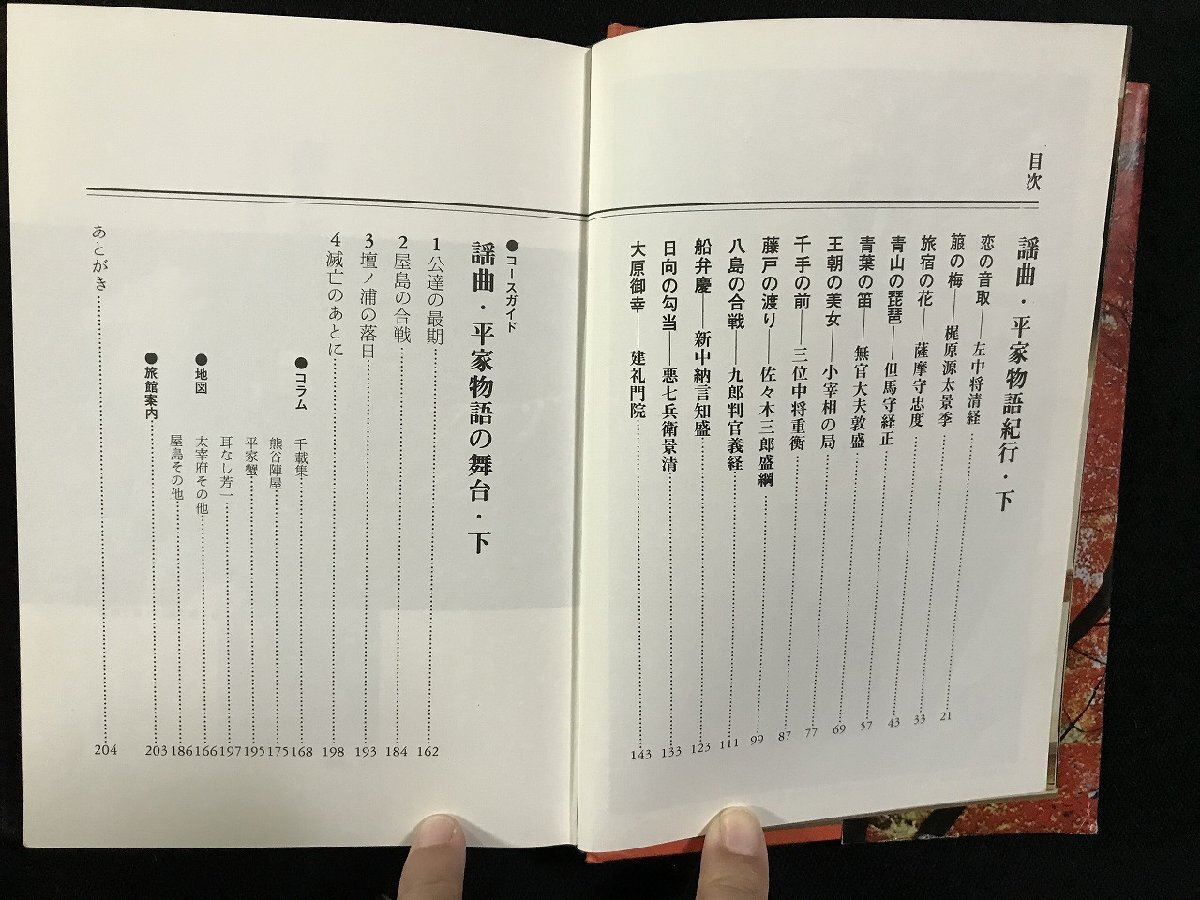 目次
謡曲・平家物語紀行・下
恋の音取――左中将清経……21
箙の梅――梶原源太景季……33
旅宿の花――薩摩守忠度……43
青山の琵琶――但馬守経正……57
青葉の笛――無官大夫敦盛……69
王朝の美女――小宰相の局……77
千手の前――三位中将重衡……87
藤戸の渡り――佐々木三郎盛綱……99
八島の合戦――九郎判官義経……111
船弁慶――新中納言知盛……123
日向の勾当――悪七兵衛景清……133
大原御幸――建礼門院……143
●コースガイド
謡曲・平家物語の舞台・下
1 公達の最期……162
2 屋島の合戦……184
3 壇ノ浦の落日……193
4 滅亡のあとに……198
●コラム
千載集……168
熊谷陣屋……175
平家蟹……195
耳なし芳一……197
●地図
太宰府その他……166
屋島その他……186
●旅館案内……203
あとがき……204